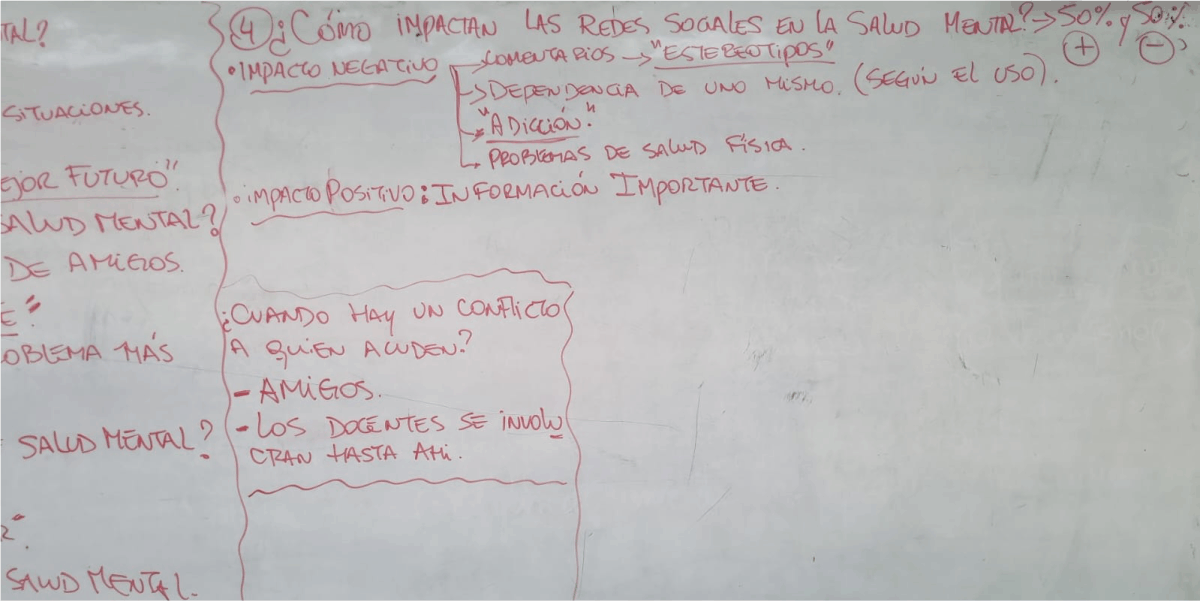 TAL?
SITUACIONES.
EJOR FUTURO".
SALUD MENTAL?
DE AMIGOS.
E"
OBLEMA MÁS
SALUD MENTAL?
SALUD MENTAL.
④ ¿CÓMO IMPACTAN LAS REDES SOCIALES EN LA SALUD MENTAL? → 50% y 50%
+ -
• IMPACTO NEGATIVO → COMENTARIOS → "ESTEREOTIPOS"
→ DEPENDENCIA DE UNO MISMO. (SEGÚN EL USO).
→ "ADICCIÓN."
→ PROBLEMAS DE SALUD FÍSICA.
• IMPACTO POSITIVO: INFORMACIÓN IMPORTANTE.
¿CUANDO HAY UN CONFLICTO
A QUIEN ACUDEN?
- AMIGOS.
- LOS DOCENTES SE INVOLU
CRAN HASTA AHI.